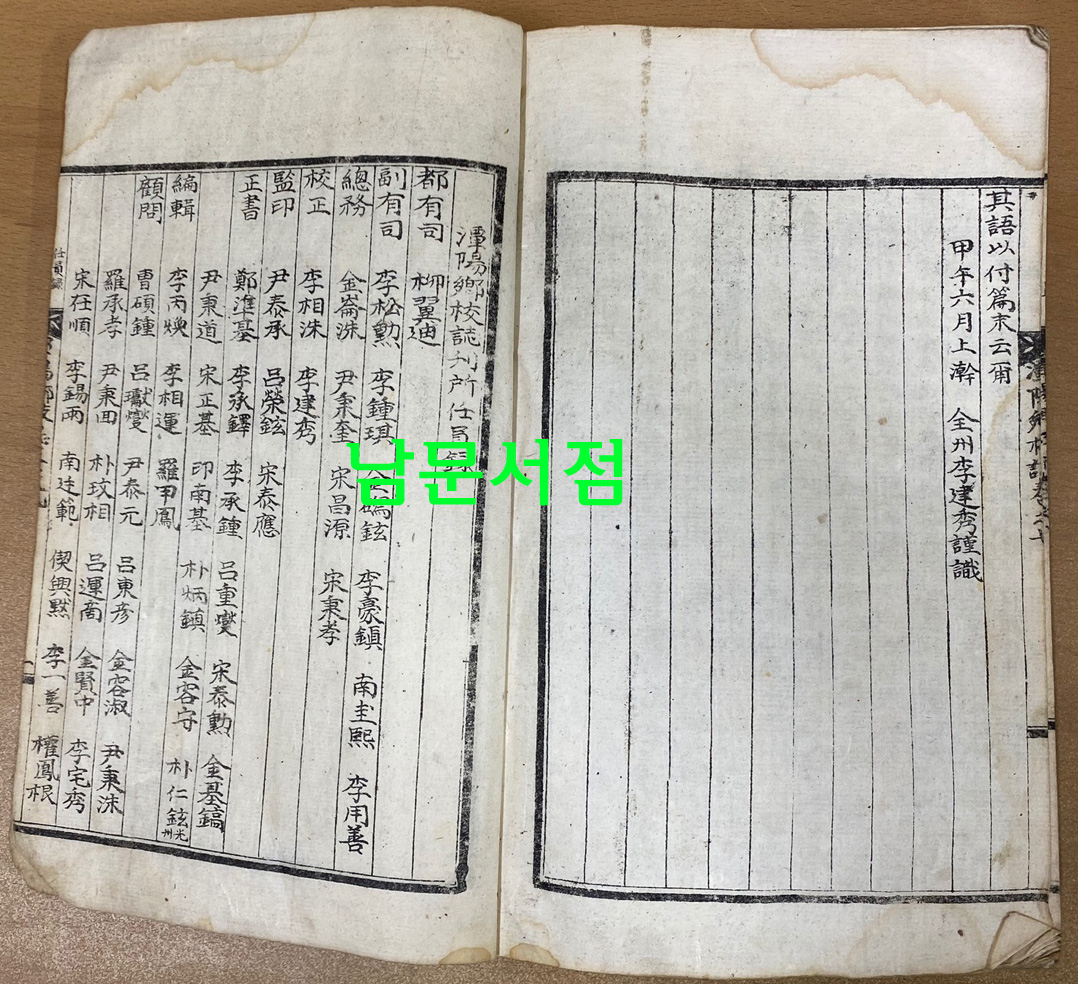 其語以付篇末云爾
甲午六月上澣 全州李建秀謹識
潭陽鄉校誌
潭陽鄉校誌刊所任員錄
都有司 柳翼迪
副有司 李松勲 李鍾琪 鉉 李豪鎮 南圭熙 李用善
總務 金崙洙 尹秉奎 宋昌源 宋秉孝
校正 李相洙 李建秀
監印 尹泰承 呂榮鉉 宋泰應
正書 鄭準基 李承鐸 李承鍾 呂重燮 宋泰勲 金基鎬
尹秉道 宋正基 印南基 朴炳鎮 金容守 朴仁鉉光州
編輯 李丙煥 李相運 羅甲鳳
顧問 曹碩鍾 呂獻燮 尹泰元 呂東彦 金容淑 尹秉洙
羅承孝 尹秉面 朴玟相 呂運商 金賢中 李宅秀
宋在順 李錫雨 南廷範 偰興黙 李一善 權鳳根
任員錄
남문서점